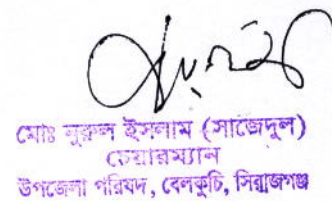 মোঃ নুরুল ইসলাম (সাজেদুল)
চেয়ারম্যান
উপজেলা পরিষদ, বেলকুচি, সিরাজগঞ্জ